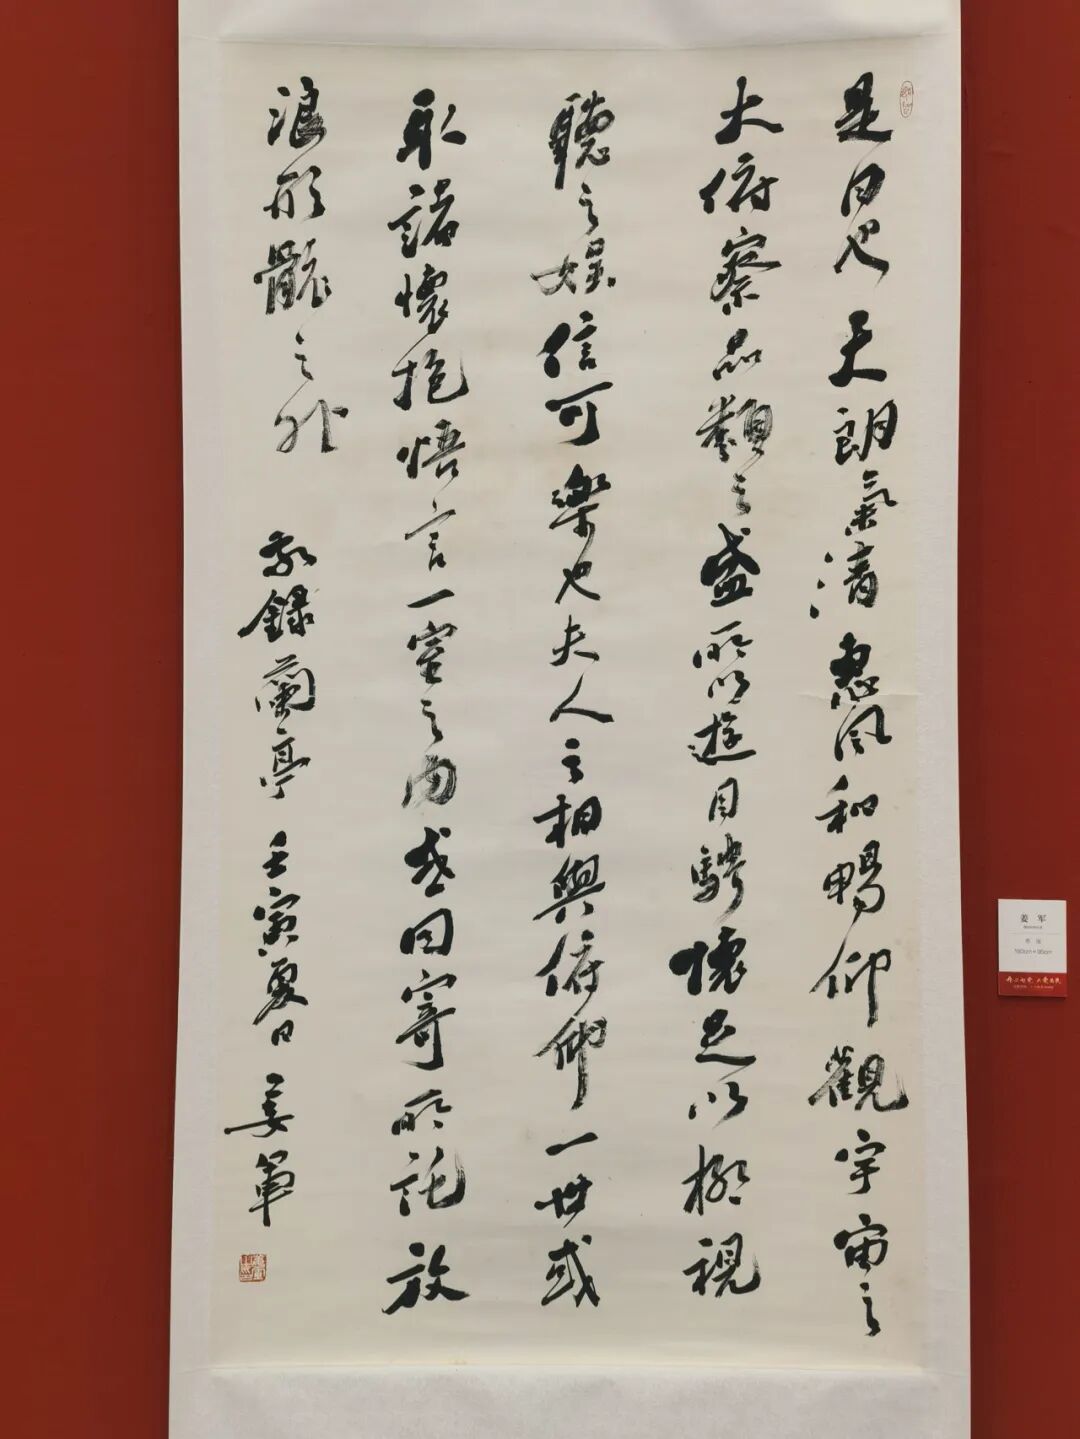 是日也天朗氣清惠風和暢仰觀宇宙之
大俯察品類之盛所以遊目騁懷足以極視
聽之娛信可樂也夫人之相與俯仰一世或
取諸懷抱悟言一室之內或因寄所託放
浪形骸之外 敬錄蘭亭 壬寅夏日 姜軍
姜 军
180cm×95cm